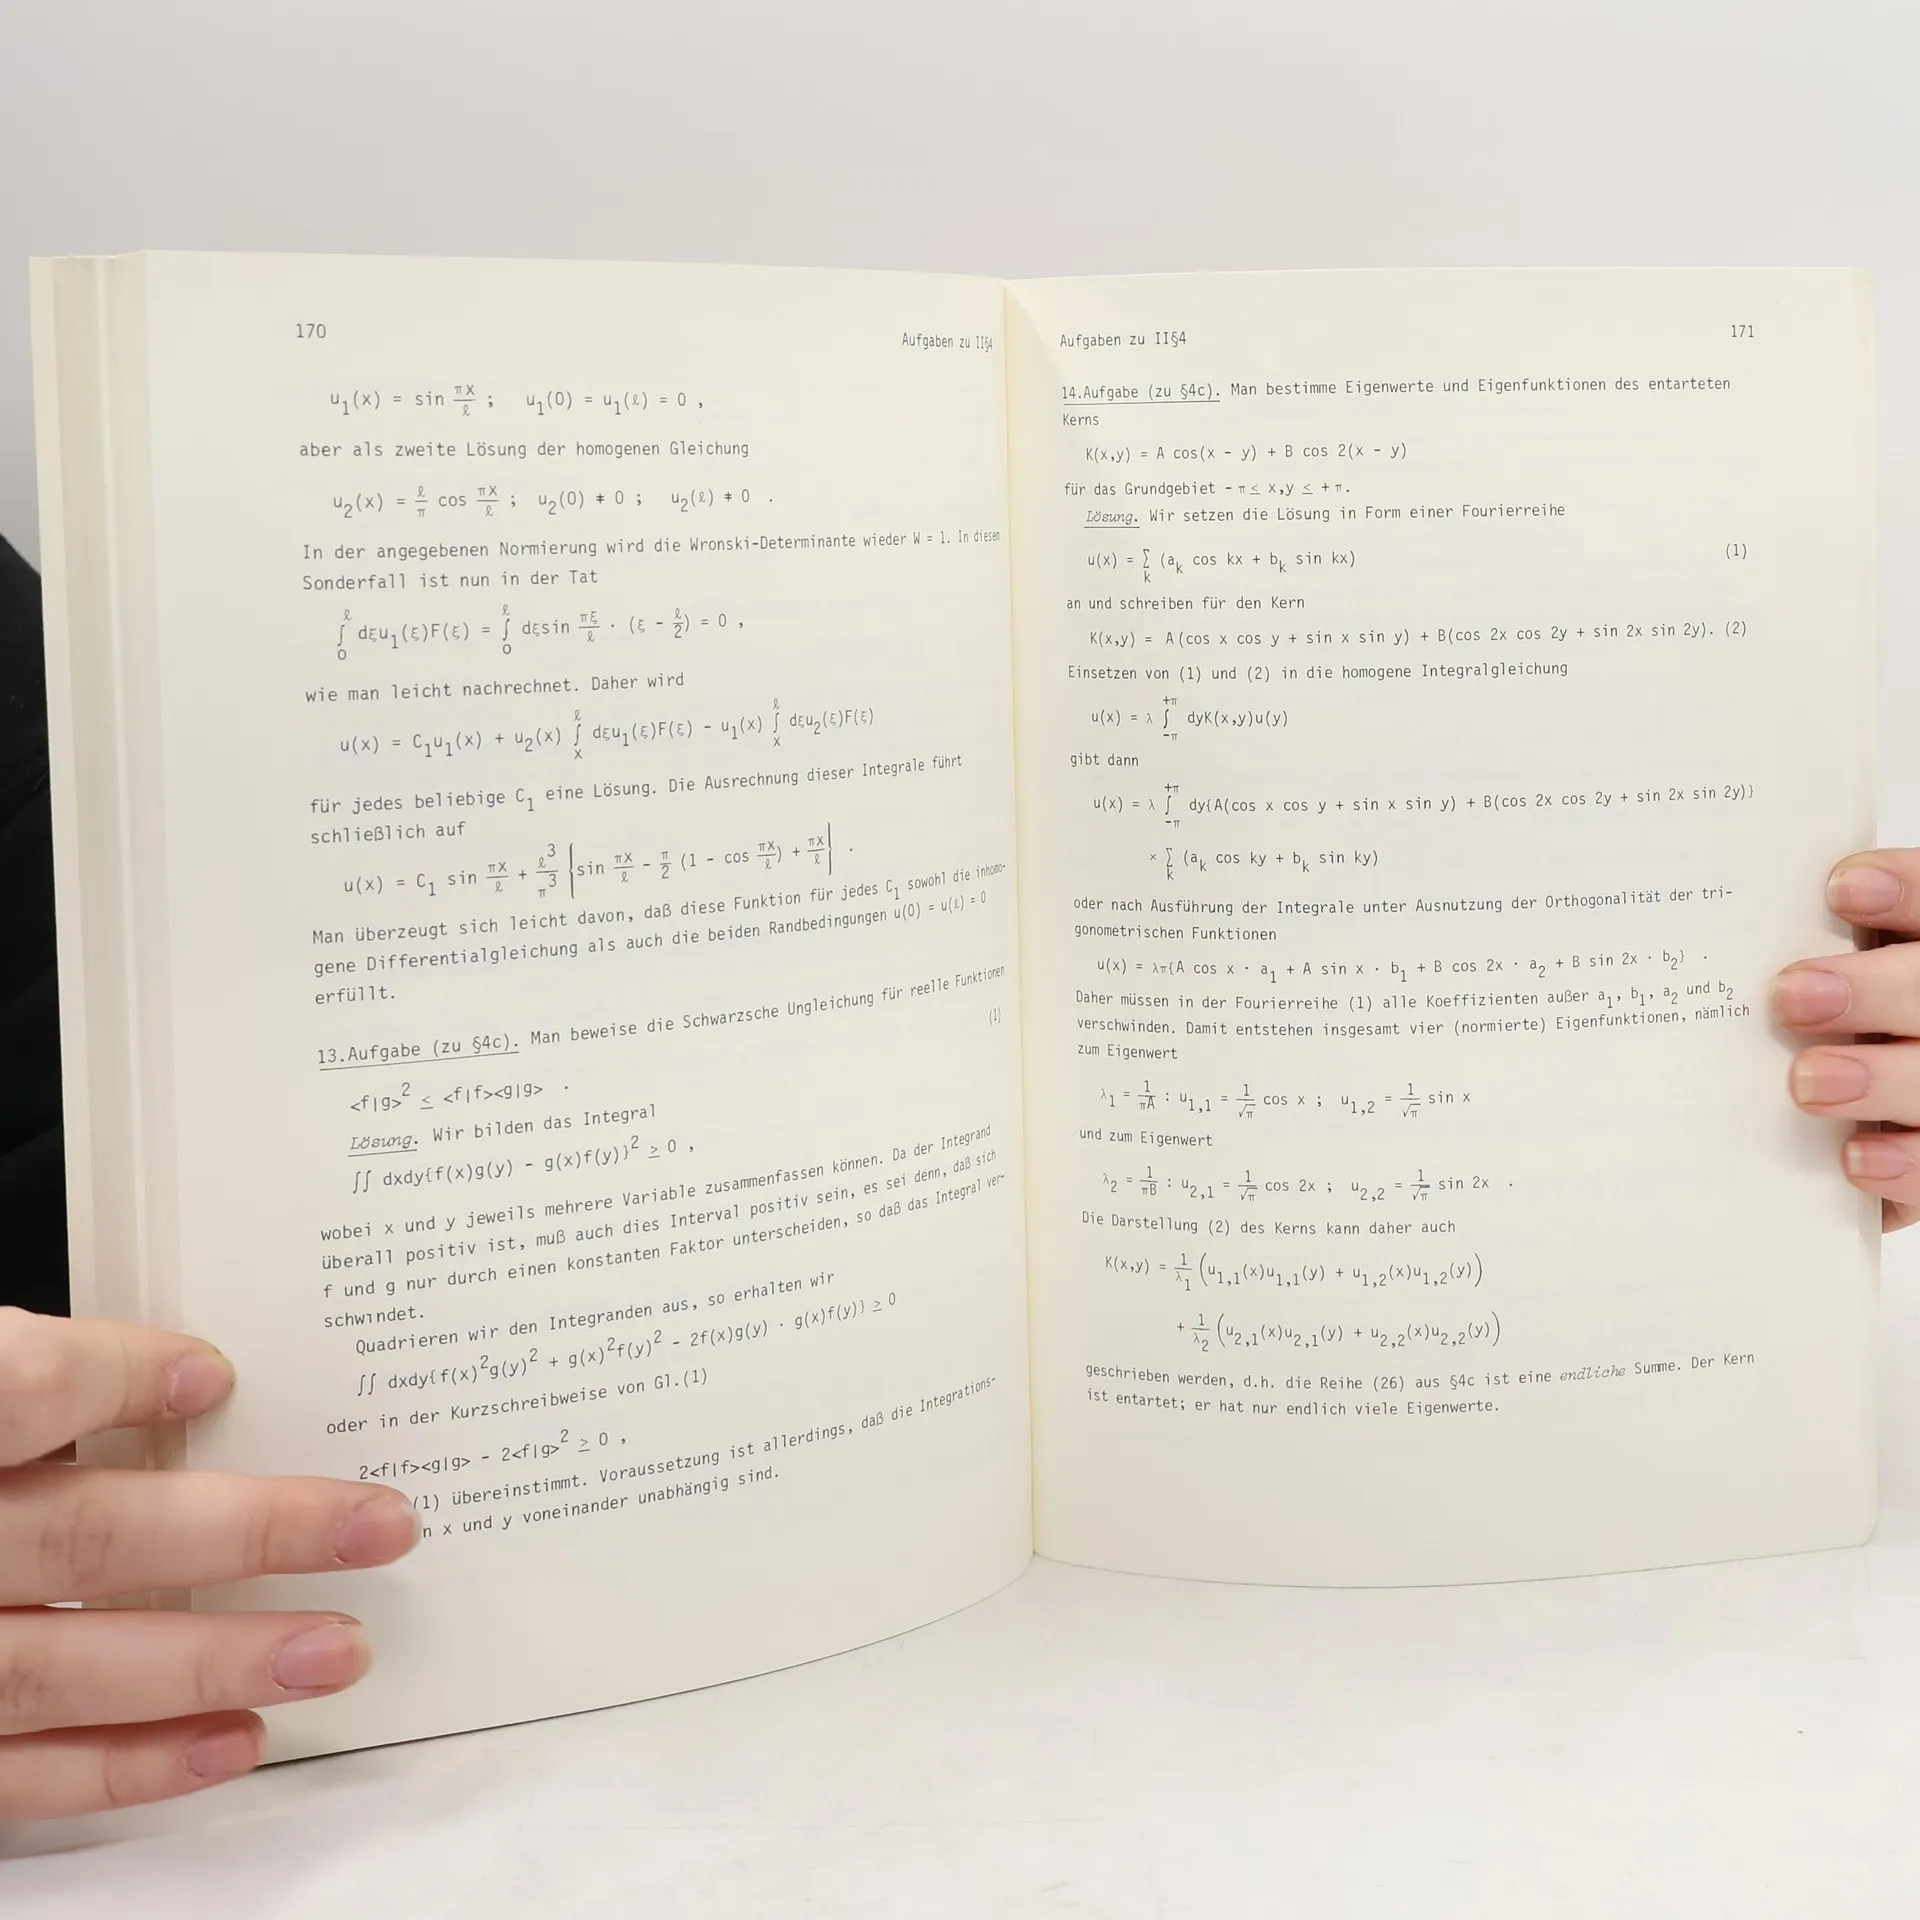 170
Aufgaben zu II§4
u₁(x) = sin πx/ℓ ; u₁(0) = u₁(ℓ) = 0 ,
aber als zweite Lösung der homogenen Gleichung
u₂(x) = ℓ/π cos πx/ℓ ; u₂(0) ≠ 0 ; u₂(ℓ) ≠ 0 .
In der angegebenen Normierung wird die Wronski-Determinante wieder W = 1. In diesem
Sonderfall ist nun in der Tat
∫₀^ℓ dξu₁(ξ)F(ξ) = ∫₀^ℓ dξsin πξ/ℓ · (ξ - ℓ/2) = 0 ,
wie man leicht nachrechnet. Daher wird
u(x) = C₁u₁(x) + u₂(x) ∫ₓ^ℓ dξu₁(ξ)F(ξ) - u₁(x) ∫ₓ^ℓ dξu₂(ξ)F(ξ)
für jedes beliebige C₁ eine Lösung. Die Ausrechnung dieser Integrale führt
schließlich auf
u(x) = C₁ sin πx/ℓ + ℓ³/π³ {sin πx/ℓ - π/2 (1 - cos πx/ℓ) + πx/ℓ} .
Man überzeugt sich leicht davon, daß diese Funktion für jedes C₁ sowohl die inhomo-
gene Differentialgleichung als auch die beiden Randbedingungen u(0) = u(ℓ) = 0
erfüllt.
13.Aufgabe (zu §4c). Man beweise die Schwarzsche Ungleichung für reelle Funktionen
<f|g>² ≤ <f|f><g|g> . (1)
Lösung. Wir bilden das Integral
∫∫ dxdy{f(x)g(y) - g(x)f(y)}² ≥ 0 ,
wobei x und y jeweils mehrere Variable zusammenfassen können. Da der Integrand
überall positiv ist, muß auch dies Interval positiv sein, es sei denn, daß sich
f und g nur durch einen konstanten Faktor unterscheiden, so daß das Integral ver-
schwindet.
Quadrieren wir den Integranden aus, so erhalten wir
∫∫ dxdy{f(x)²g(y)² + g(x)²f(y)² - 2f(x)g(y) · g(x)f(y)} ≥ 0
oder in der Kurzschreibweise von Gl.(1)
2<f|f><g|g> - 2<f|g>² ≥ 0 ,
(1) übereinstimmt. Voraussetzung ist allerdings, daß die Integrations-
n x und y voneinander unabhängig sind.
Aufgaben zu II§4
171
14.Aufgabe (zu §4c). Man bestimme Eigenwerte und Eigenfunktionen des entarteten
Kerns
K(x,y) = A cos(x - y) + B cos 2(x - y)
für das Grundgebiet - π ≤ x,y ≤ + π.
Lösung. Wir setzen die Lösung in Form einer Fourierreihe
u(x) = ∑ₖ (aₖ cos kx + bₖ sin kx) (1)
an und schreiben für den Kern
K(x,y) = A(cos x cos y + sin x sin y) + B(cos 2x cos 2y + sin 2x sin 2y). (2)
Einsetzen von (1) und (2) in die homogene Integralgleichung
u(x) = λ ∫₋π^+π dyK(x,y)u(y)
gibt dann
u(x) = λ ∫₋π^+π dy{A(cos x cos y + sin x sin y) + B(cos 2x cos 2y + sin 2x sin 2y)}
× ∑ₖ (aₖ cos ky + bₖ sin ky)
oder nach Ausführung der Integrale unter Ausnutzung der Orthogonalität der tri-
gonometrischen Funktionen
u(x) = λπ{A cos x · a₁ + A sin x · b₁ + B cos 2x · a₂ + B sin 2x · b₂} .
Daher müssen in der Fourierreihe (1) alle Koeffizienten außer a₁, b₁, a₂ und b₂
verschwinden. Damit entstehen insgesamt vier (normierte) Eigenfunktionen, nämlich
zum Eigenwert
λ₁ = 1/πA : u₁,₁ = 1/√π cos x ; u₁,₂ = 1/√π sin x
und zum Eigenwert
λ₂ = 1/πB : u₂,₁ = 1/√π cos 2x ; u₂,₂ = 1/√π sin 2x .
Die Darstellung (2) des Kerns kann daher auch
K(x,y) = 1/λ₁ (u₁,₁(x)u₁,₁(y) + u₁,₂(x)u₁,₂(y))
+ 1/λ₂ (u₂,₁(x)u₂,₁(y) + u₂,₂(x)u₂,₂(y))
geschrieben werden, d.h. die Reihe (26) aus §4c ist eine endliche Summe. Der Kern
ist entartet; er hat nur endlich viele Eigenwerte.